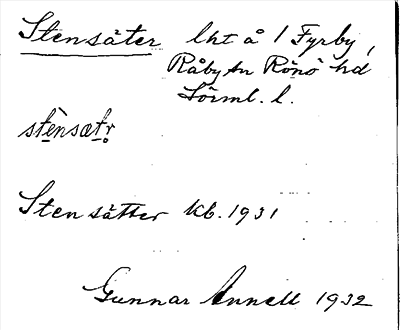 Stensäter lht å / Fyrby,
Råby sn Rönö hd
Sörml. l.
stènsætr̥
Stensätter kb. 1931
Gunnar Annell 1932